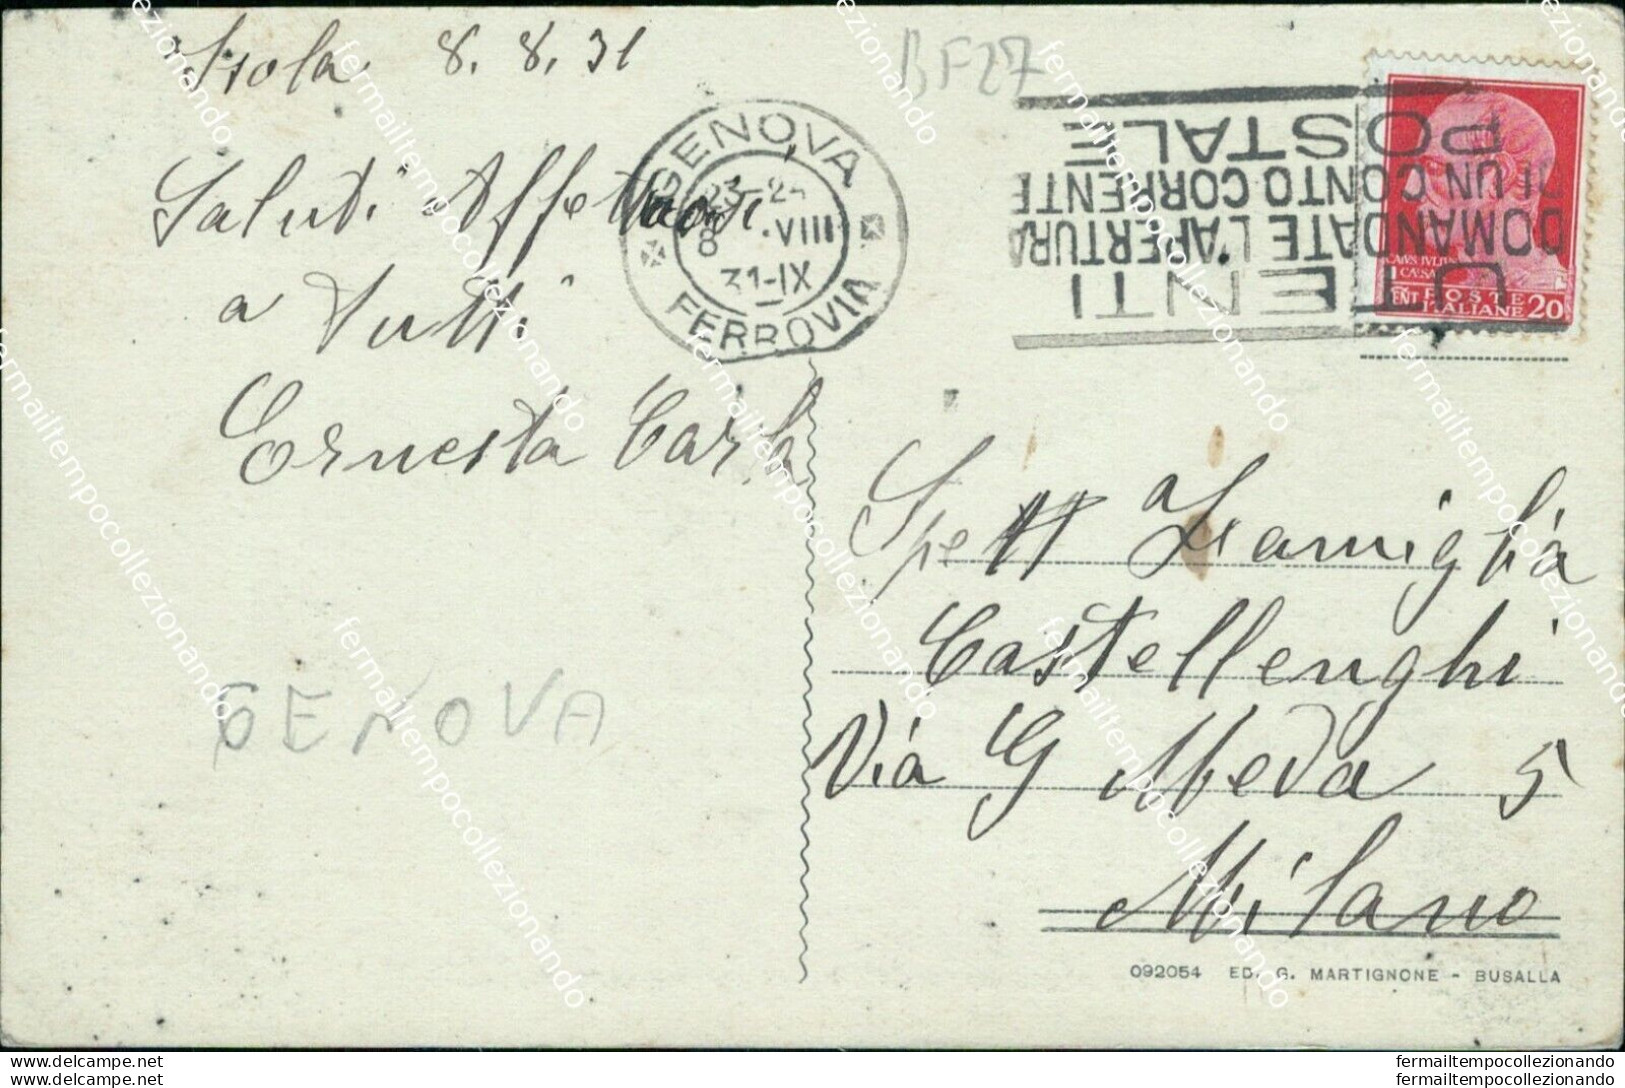 Isola 8. 8. 31
BF27
Saluti Affettuosi
a tutti
Ernesta Carla
GENOVA
GENOVA
23-24
8 .VIII
31-IX
FERROVIA
UTENTI
DOMANDATE L'APERTURA
DI UN CONTO CORRENTE
POSTALE
CAIVS IVLIVS
CAESAR
CENT POSTE 20
ITALIANE
Spett Famiglia
Castellenghi
Via G Meda 5
Milano
092054 ED. G. MARTIGNONE - BUSALLA
fermailtempocollezionando
www.delcampe.net
fermailtempocollezionando
www.delcampe.net
fermailtempocollezionando